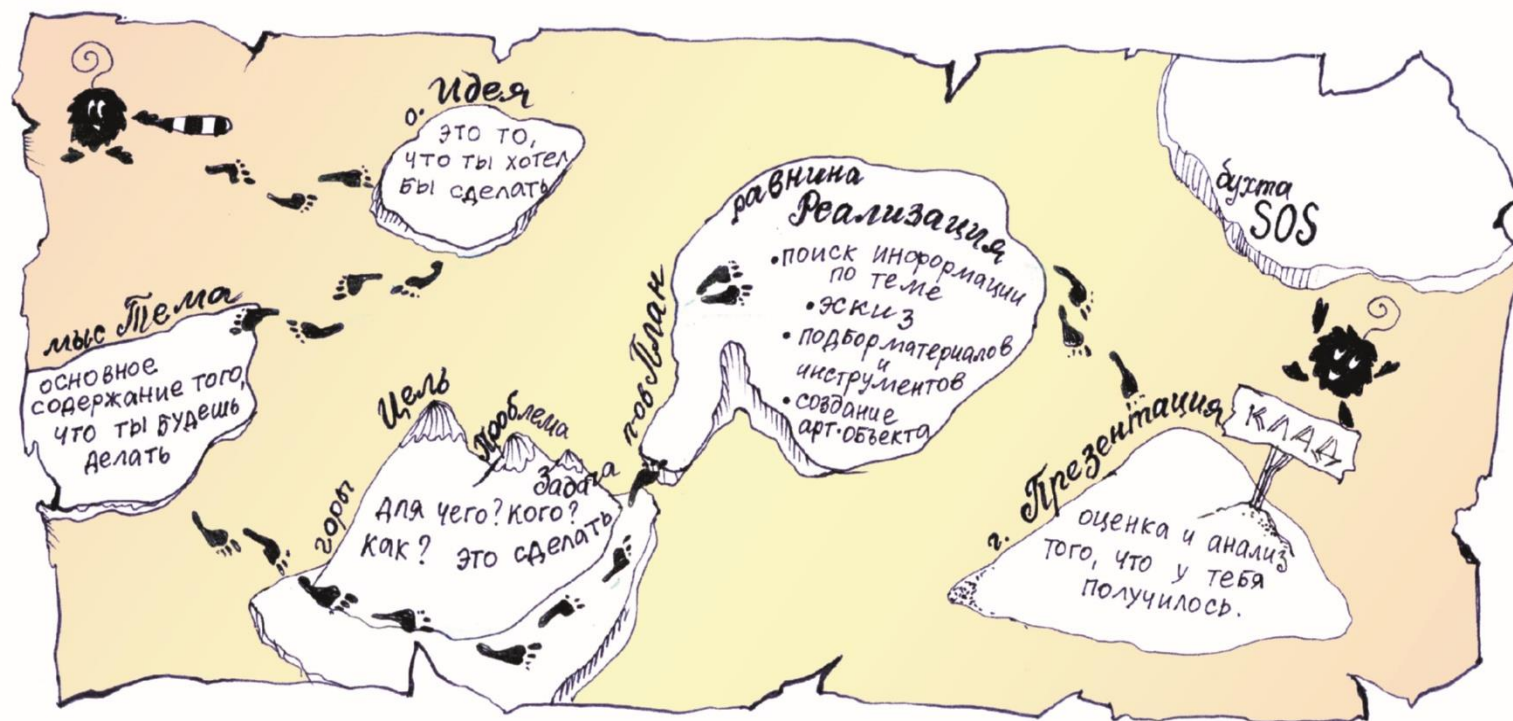 о. Идея
это то,
что ты хотел
бы сделать
мыс Тема
основное
содержание того,
что ты будешь
делать
горы
Цель
Проблема
Задача
для чего? кого?
как? это сделать
п-ов План
равнина
Реализация
• поиск информации
по теме
• эскиз
• подбор материалов
и
инструментов
• создание
арт-объекта
бухта
SOS
г. Презентация
КЛАД
оценка и анализ
того, что у тебя
получилось.